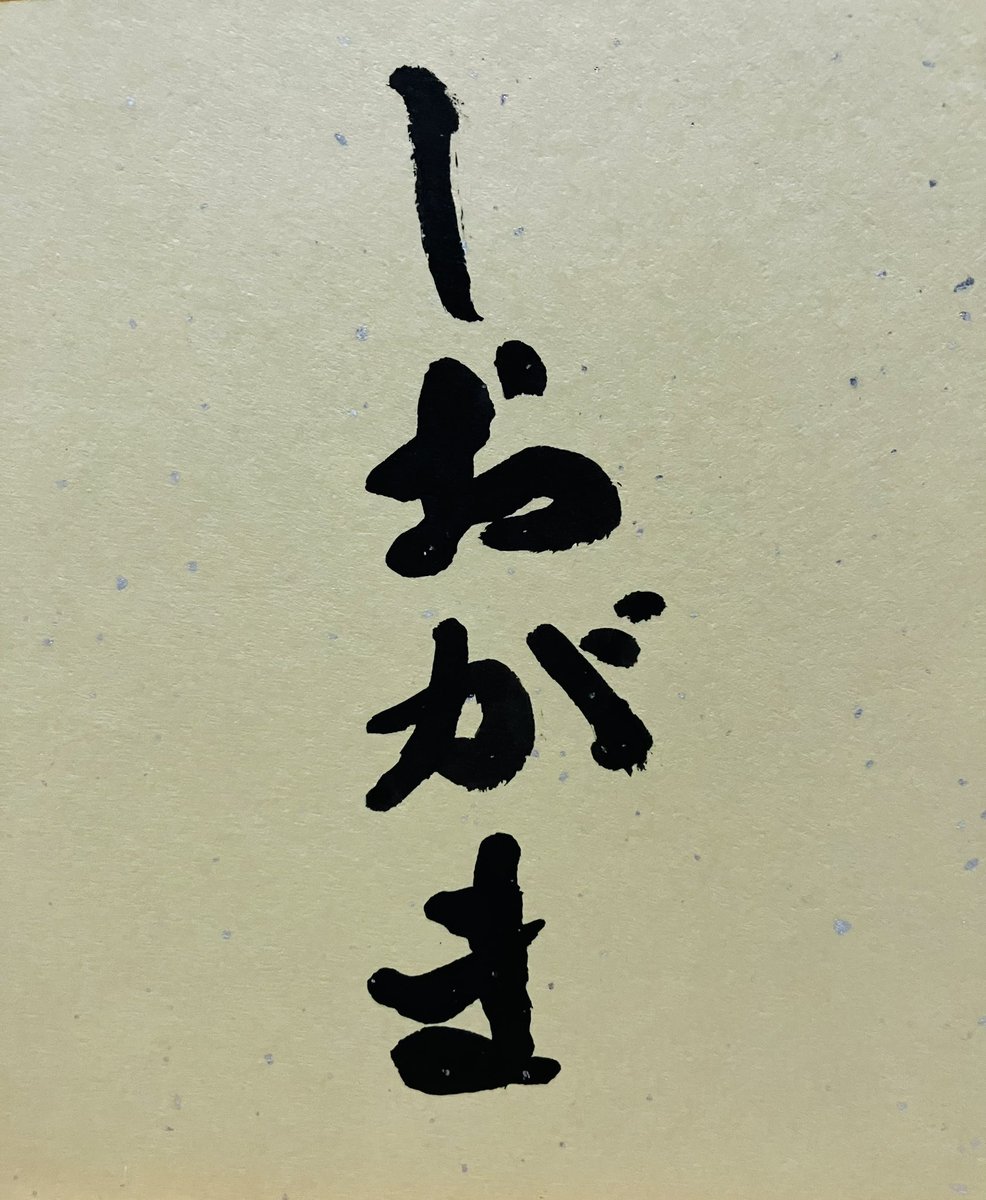 しおがま